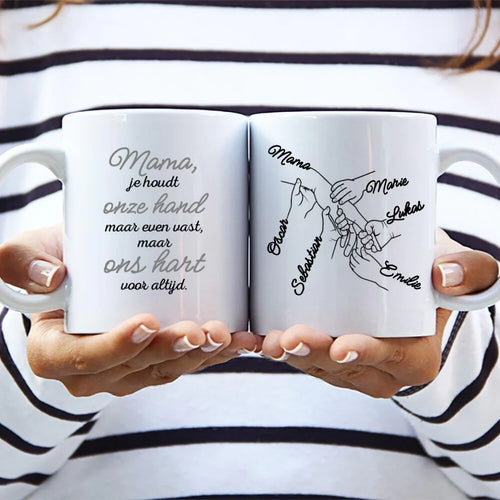 Mama,
je houdt
onze hand
maar even vast,
maar
ons hart
voor altijd.
Mama
Marie
Lukas
Oscar
Sebastian
Emilie